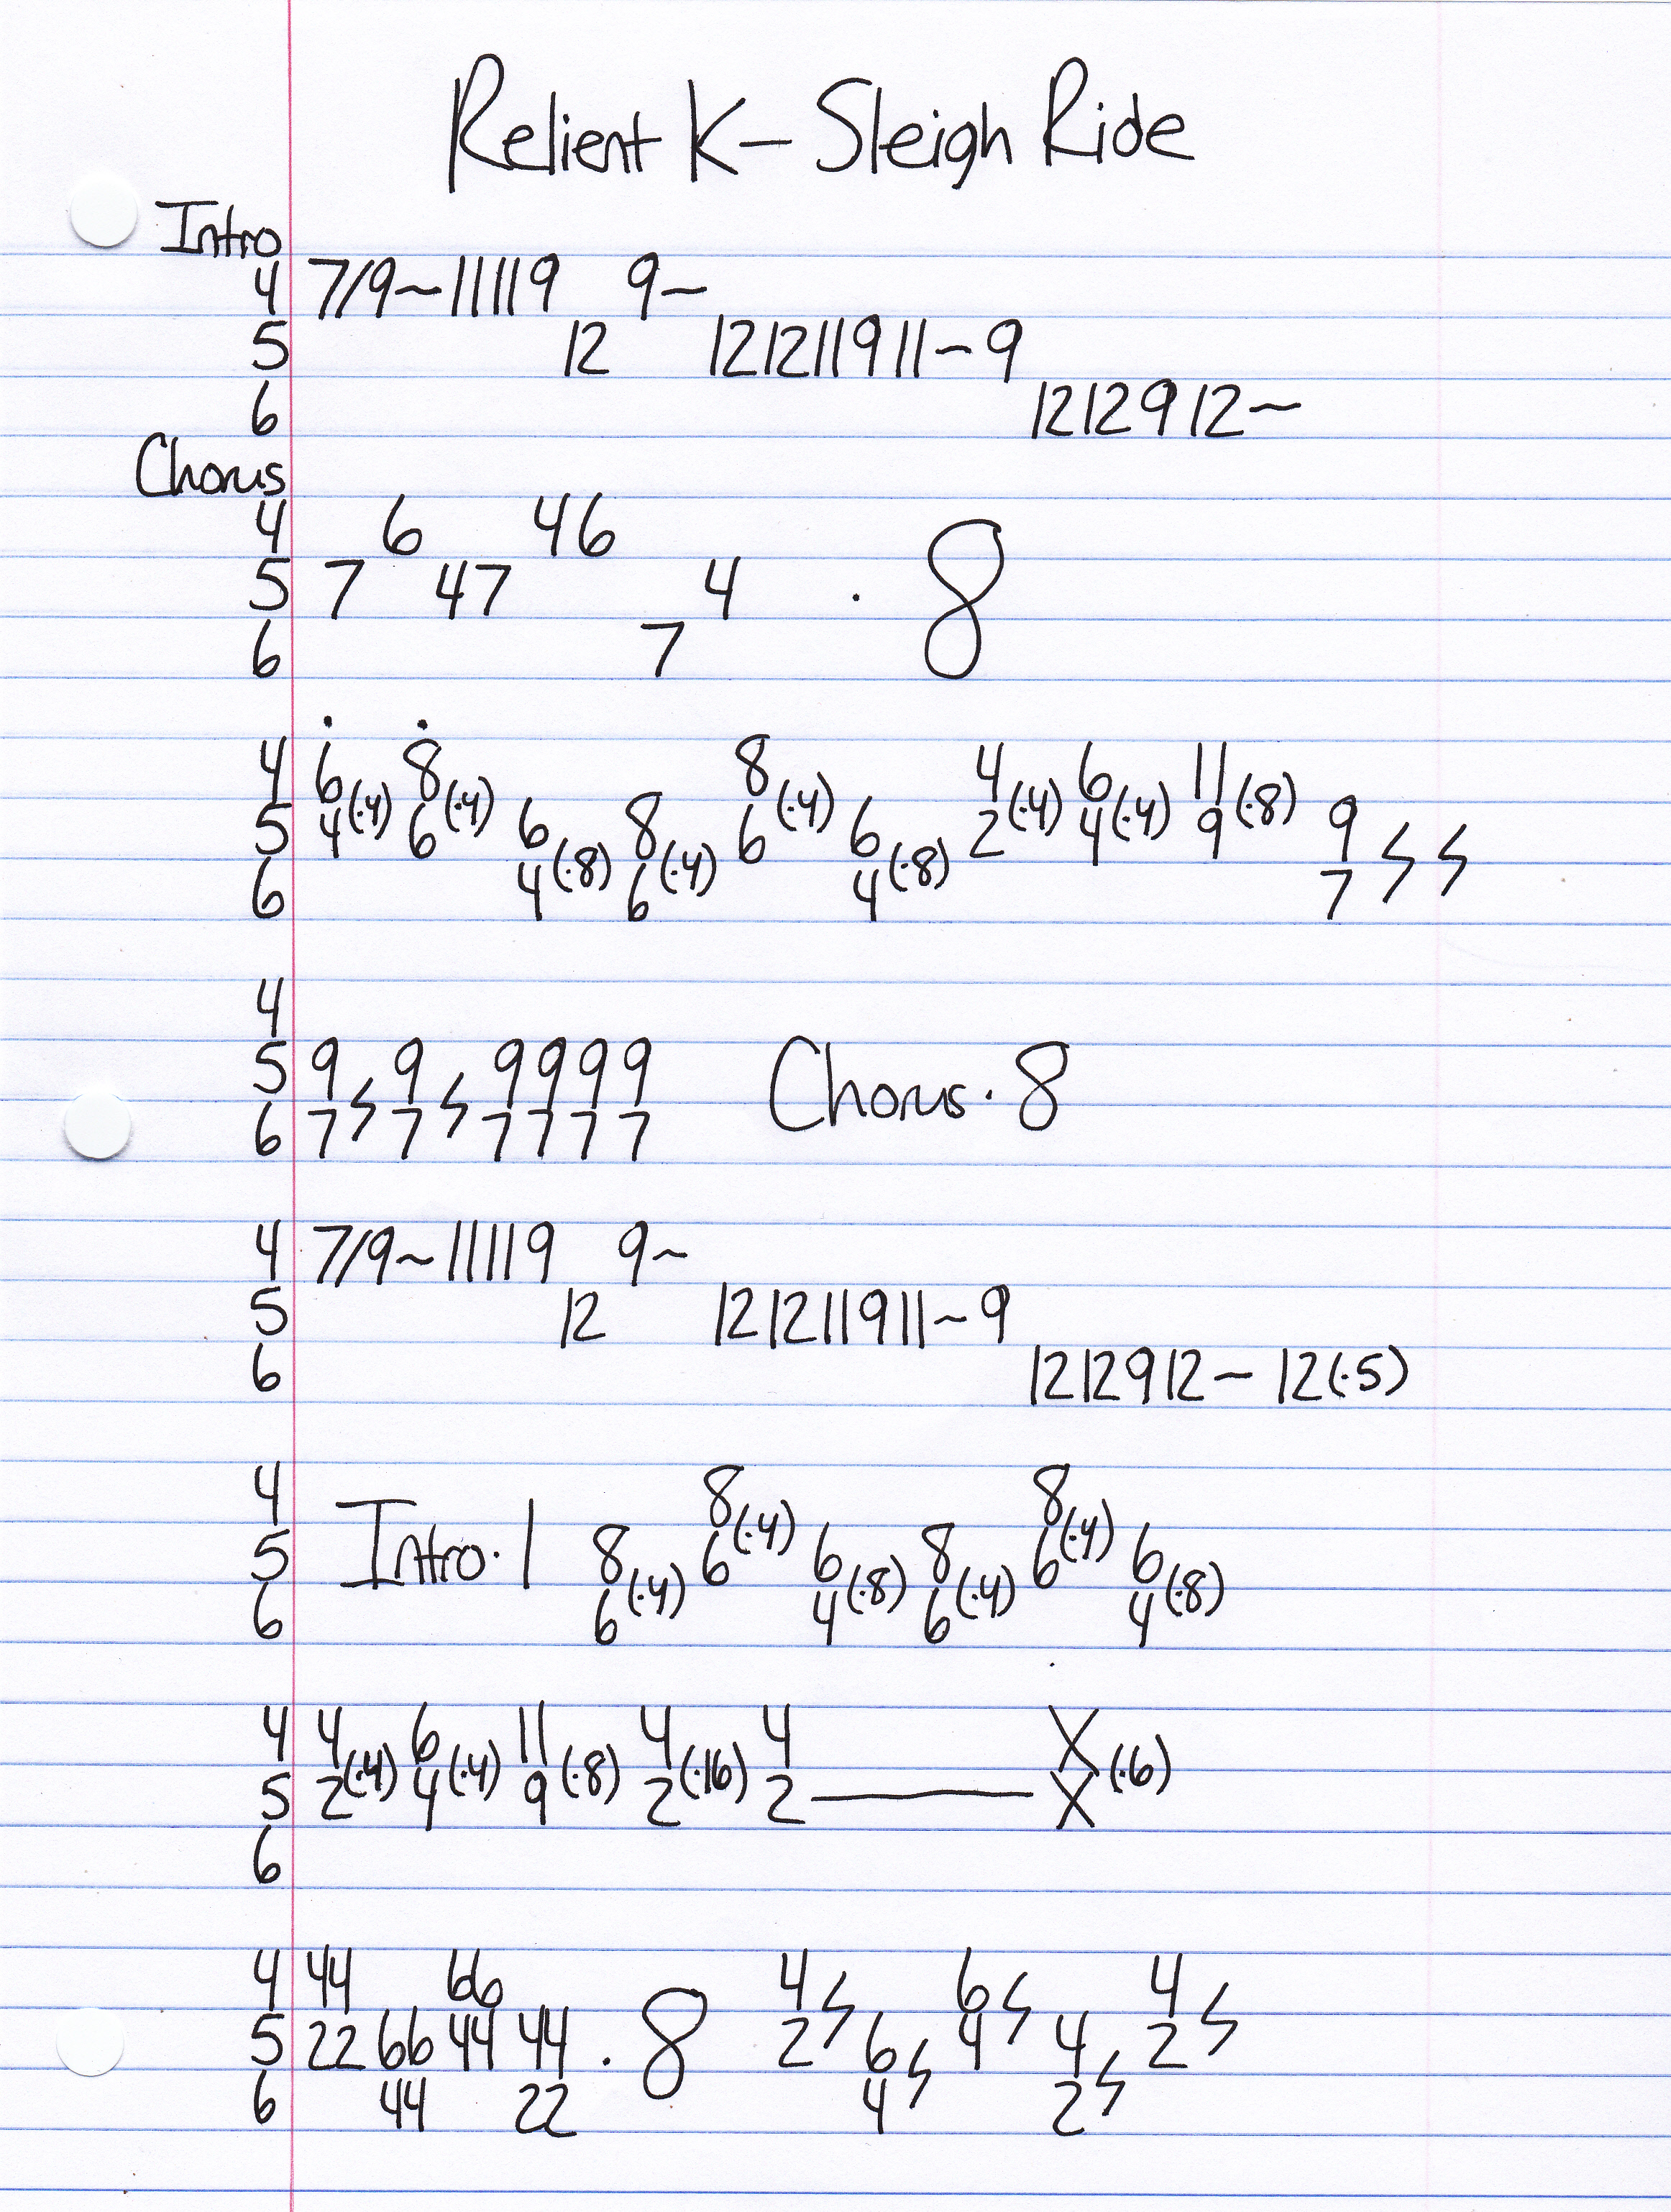 Relient K - Sleigh Ride
Intro
4 7/9~11 11 9 9~
5 12 12 12 11 9 11~9
6 12 12 9 12~
Chorus
4 6 4 6
5 7 4 7 4 · 8
6 7
4 6 8 8 4 6 11
5 4(·4) 6(·4) 6 8 6(·4) 6 2(·4) 4(·4) 9(·8) 9 ϟ ϟ
6 4(·8) 6(·4) 4(·8) 7
4
5 9 ϟ 9 ϟ 9 9 9 9 Chorus · 8
6 7 7 7 7 7 7
4 7/9~11 11 9 9~
5 12 12 12 11 9 11~9
6 12 12 9 12~ 12(·5)
4 8 8
5 Intro · 1 8 6(·4) 6 8 6(·4) 6
6 6(·4) 4(·8) 6(·4) 4(·8)
4 4 6 11 4 4 X
5 2(·4) 4(·4) 9(·8) 2(·16) 2 — X (·6)
6
4 44 66 4 ϟ 6 ϟ 4 ϟ
5 22 66 44 44 · 8 2 6 ϟ 4 4 ϟ 2
6 44 22 4 2